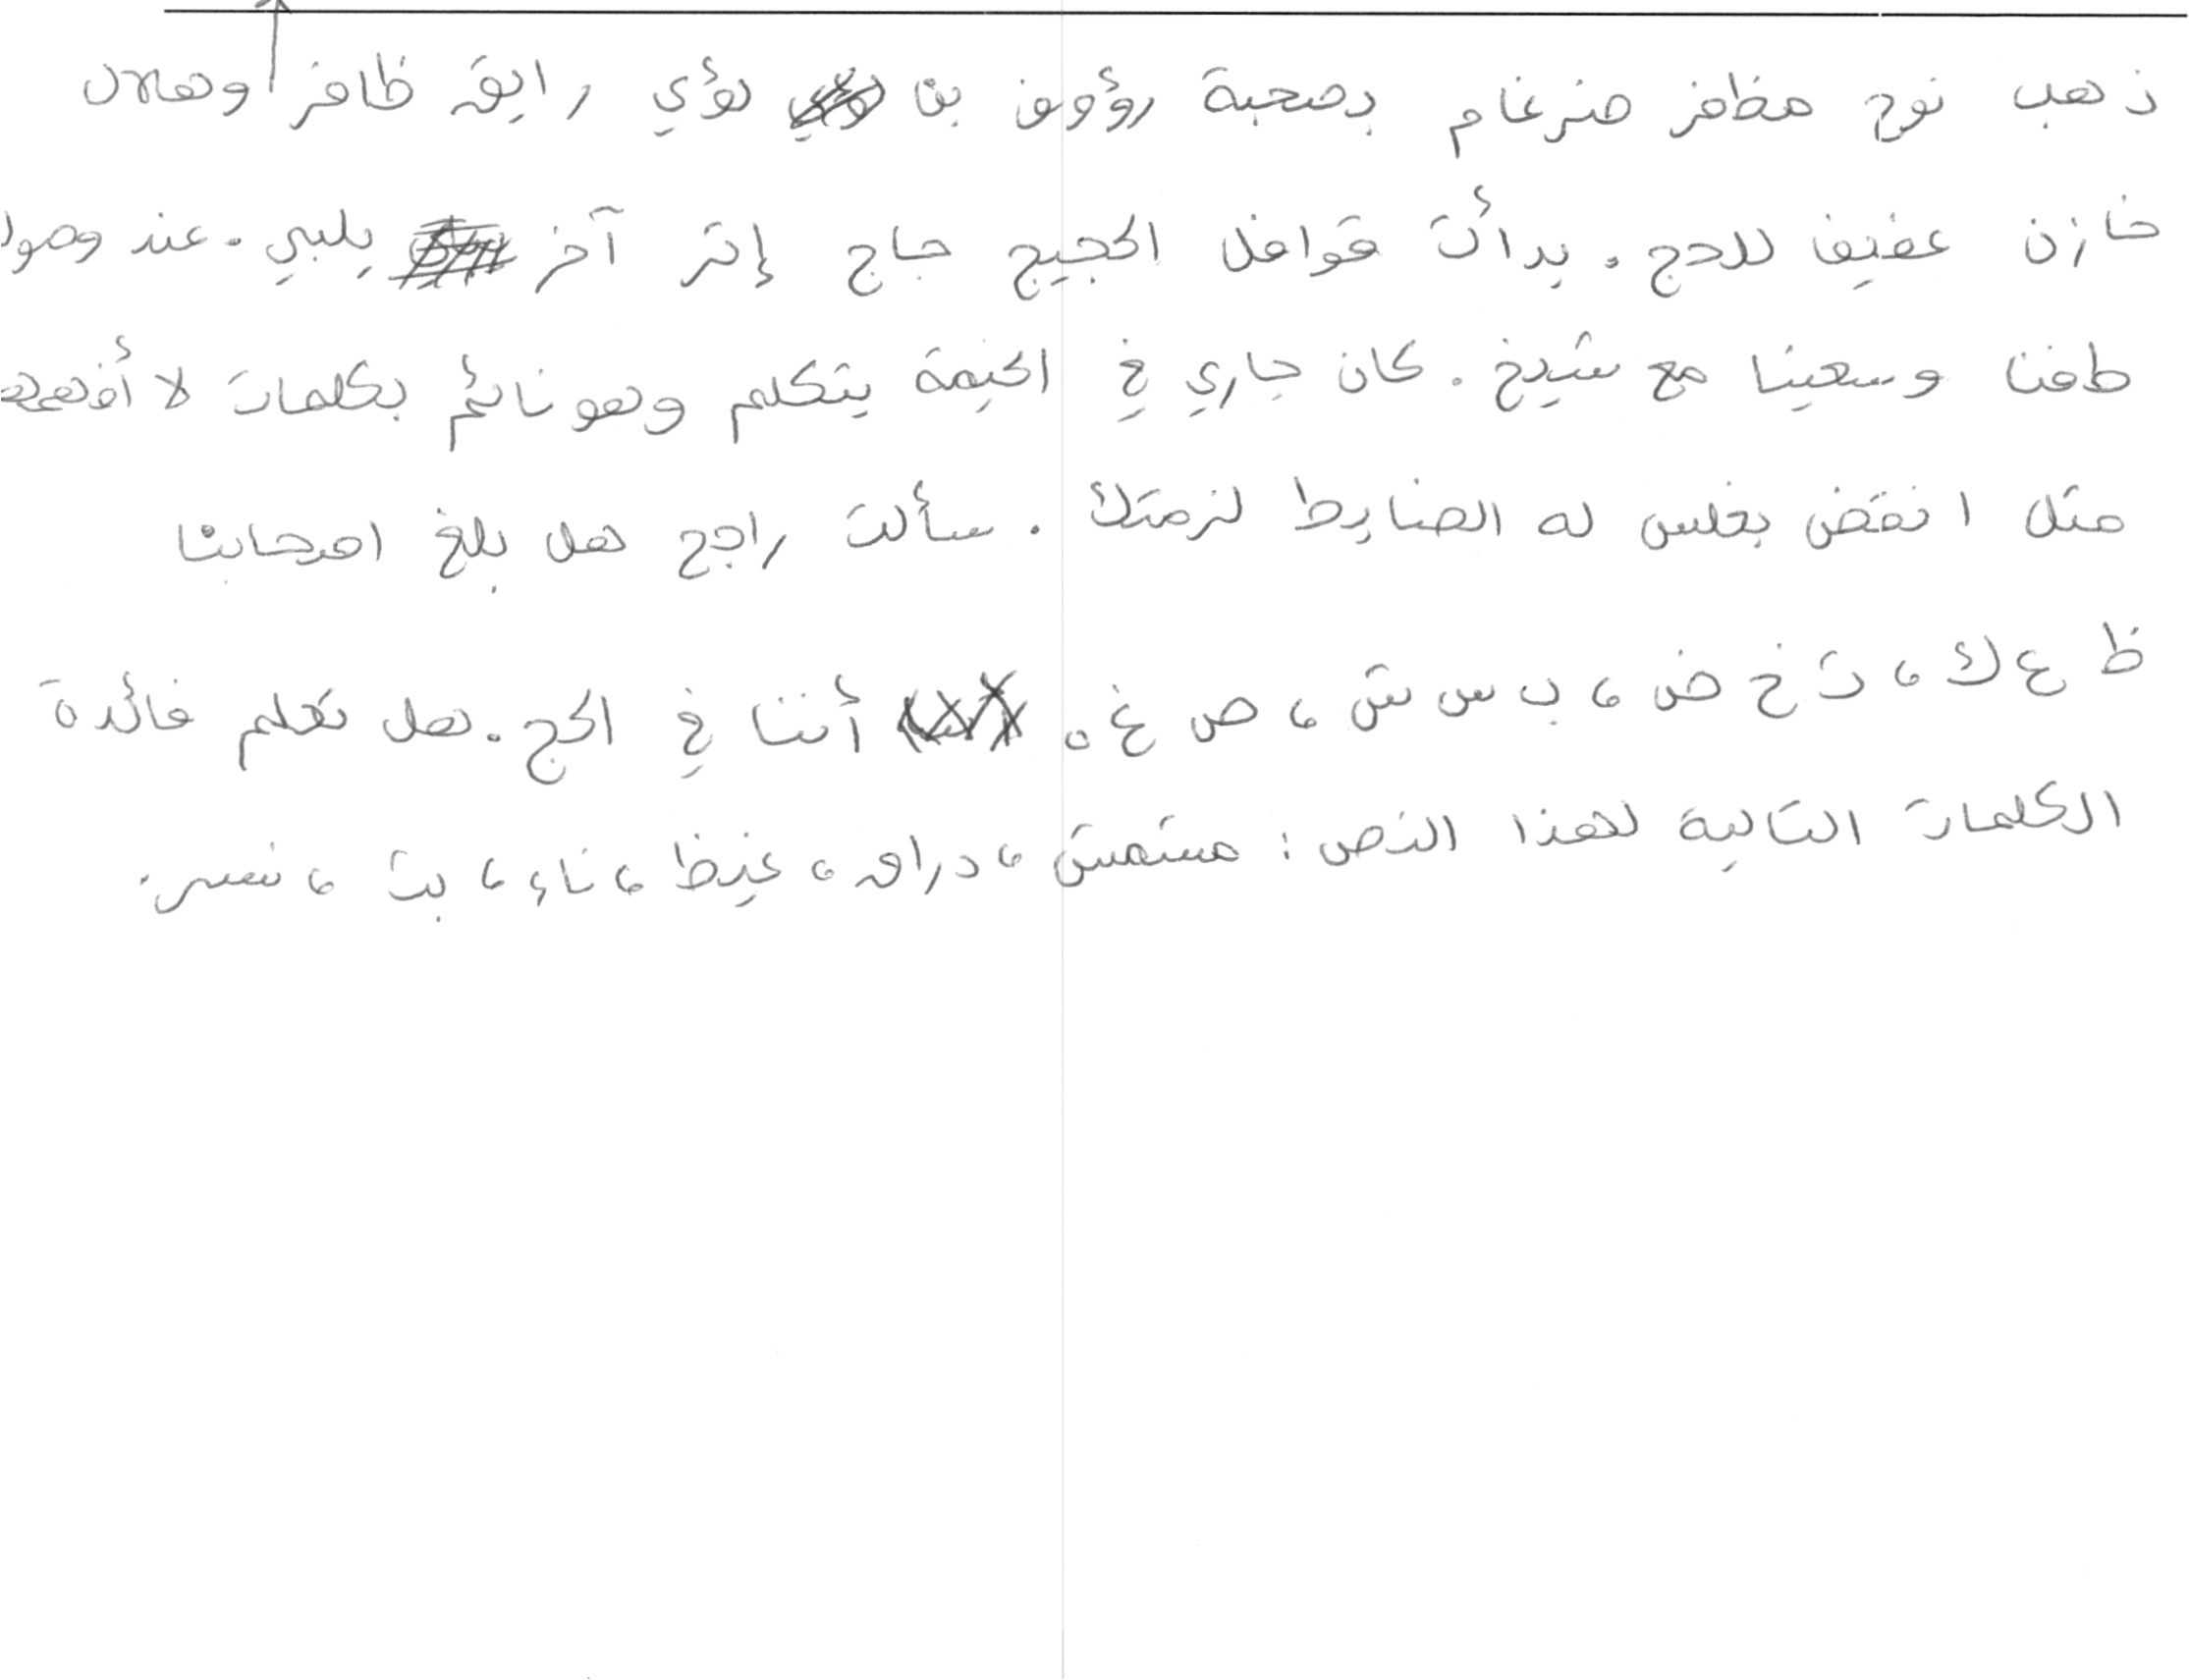 ذهب نوح مظفر ضرغام بصحبة رؤوف بن لؤي رايق ظافر وهلال
خازن عفيف للحج. بدأت قوافل الحجيج حاج إثر آخر يلبي. عند وصول
طفنا وسعينا مع شيخ. كان جاري في الخيمة يتكلم وهو نائم بكلمات لا أفهمها
مثل انقض بغلس له الضابط لزمتك. سألت راجح هل بلغ اصحابنا
ظ ع ك، ث خ ض، ب س ش، ص غ. أننا في الحج. هل تعلم فائدة
الكلمات التالية لهذا النص: مستمش، دراق، غيظ، ناء، بث،